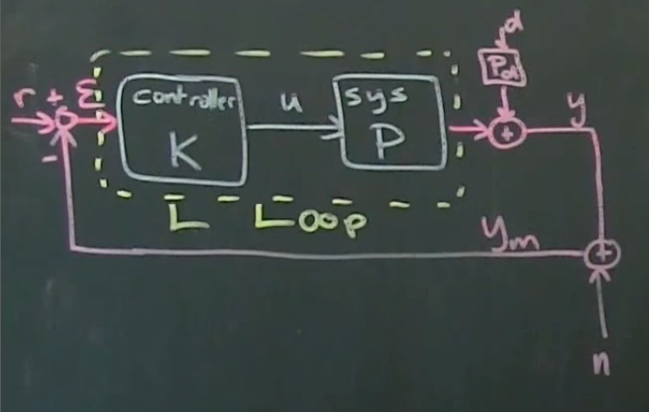 d
Pd
r + ε
controller
K
u
sys
P
+
y
-
L Loop
ym
+
n